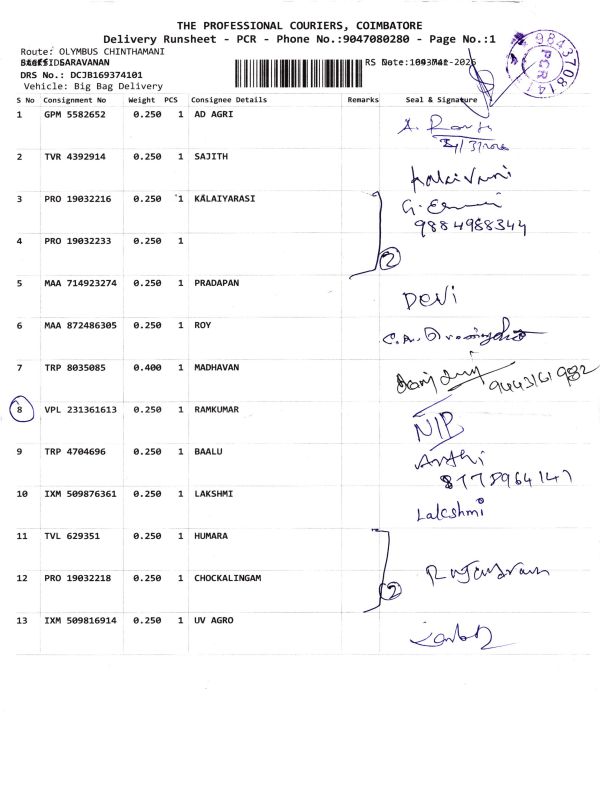 THE PROFESSIONAL COURIERS, COIMBATORE
Delivery Runsheet - PCR - Phone No.:9047080280 - Page No.:1
Route: OLYMBUS CHINTHAMANI
SARAVANAN
DRS No.: DCJB169374101
Vehicle: Big Bag Delivery
9843708141
PCR
S No Consignment No Weight PCS Consignee Details Remarks Seal & Signature
1 GPM 5582652 0.250 1 AD AGRI
2 TVR 4392914 0.250 1 SAJITH
Kalaivani
3 PRO 19032216 0.250 1 KALAIYARASI
9884988344
4 PRO 19032233 0.250 1
2
5 MAA 714923274 0.250 1 PRADAPAN
DEVi
6 MAA 872486305 0.250 1 ROY
7 TRP 8035085 0.400 1 MADHAVAN
9443161982
8 VPL 231361613 0.250 1 RAMKUMAR
NIP
9 TRP 4704696 0.250 1 BAALU
Arthi
8778964147
10 IXM 509876361 0.250 1 LAKSHMI
Lakshmi
11 TVL 629351 0.250 1 HUMARA
12 PRO 19032218 0.250 1 CHOCKALINGAM
2
13 IXM 509816914 0.250 1 UV AGRO